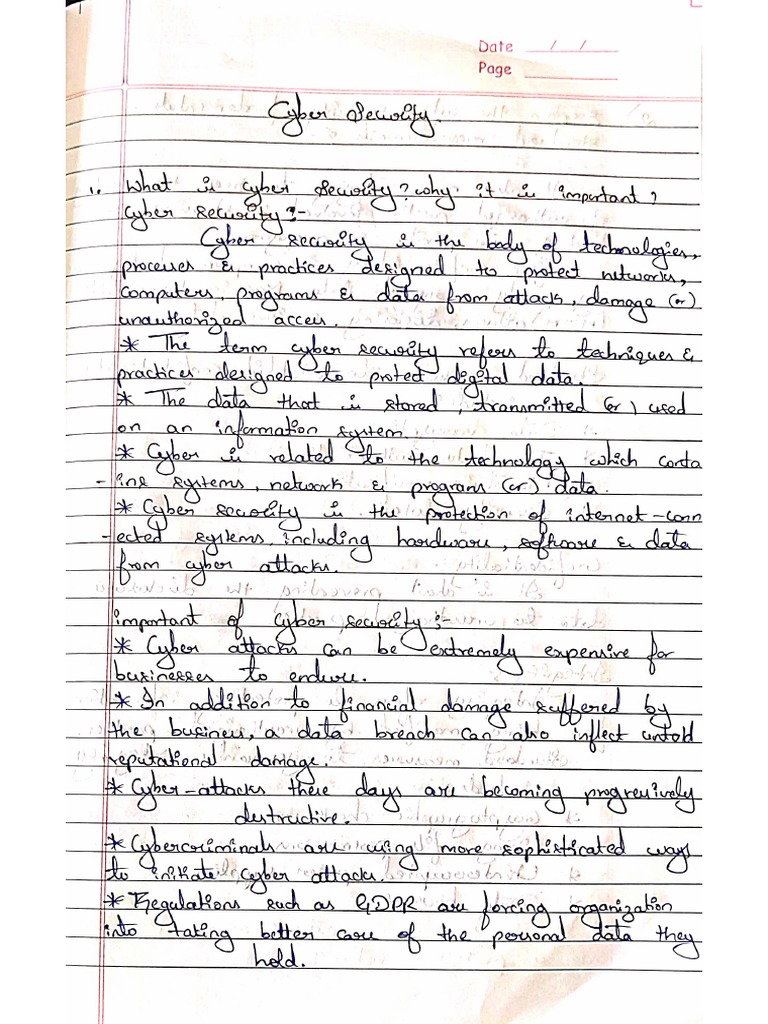 Date / /
Page
Cyber Security.
1. What is cyber security? why it is important?
Cyber security :-
Cyber security is the body of technologies,
processes & practices designed to protect networks,
computers, programs & data from attack, damage (or)
unauthorized access.
* The term cyber security refers to techniques &
practices designed to protect digital data.
* The data that is stored, transmitted (or) used
on an information system.
* Cyber is related to the technology which conta
-ins systems, network & programs (or) data.
* Cyber security is the protection of internet-conn
-ected systems, including hardware, software & data
from cyber attacks.
important of Cyber security :-
* Cyber attacks can be extremely expensive for
businesses to endure.
* In addition to financial damage suffered by
the business, a data breach can also inflect untold
reputational damage.
* Cyber-attacks these days are becoming progressively
destructive.
* Cybercriminals are using more sophisticated ways
to initiate cyber attacks.
* Regulations such as GDPR are forcing organization
into taking better care of the personal data they
hold.